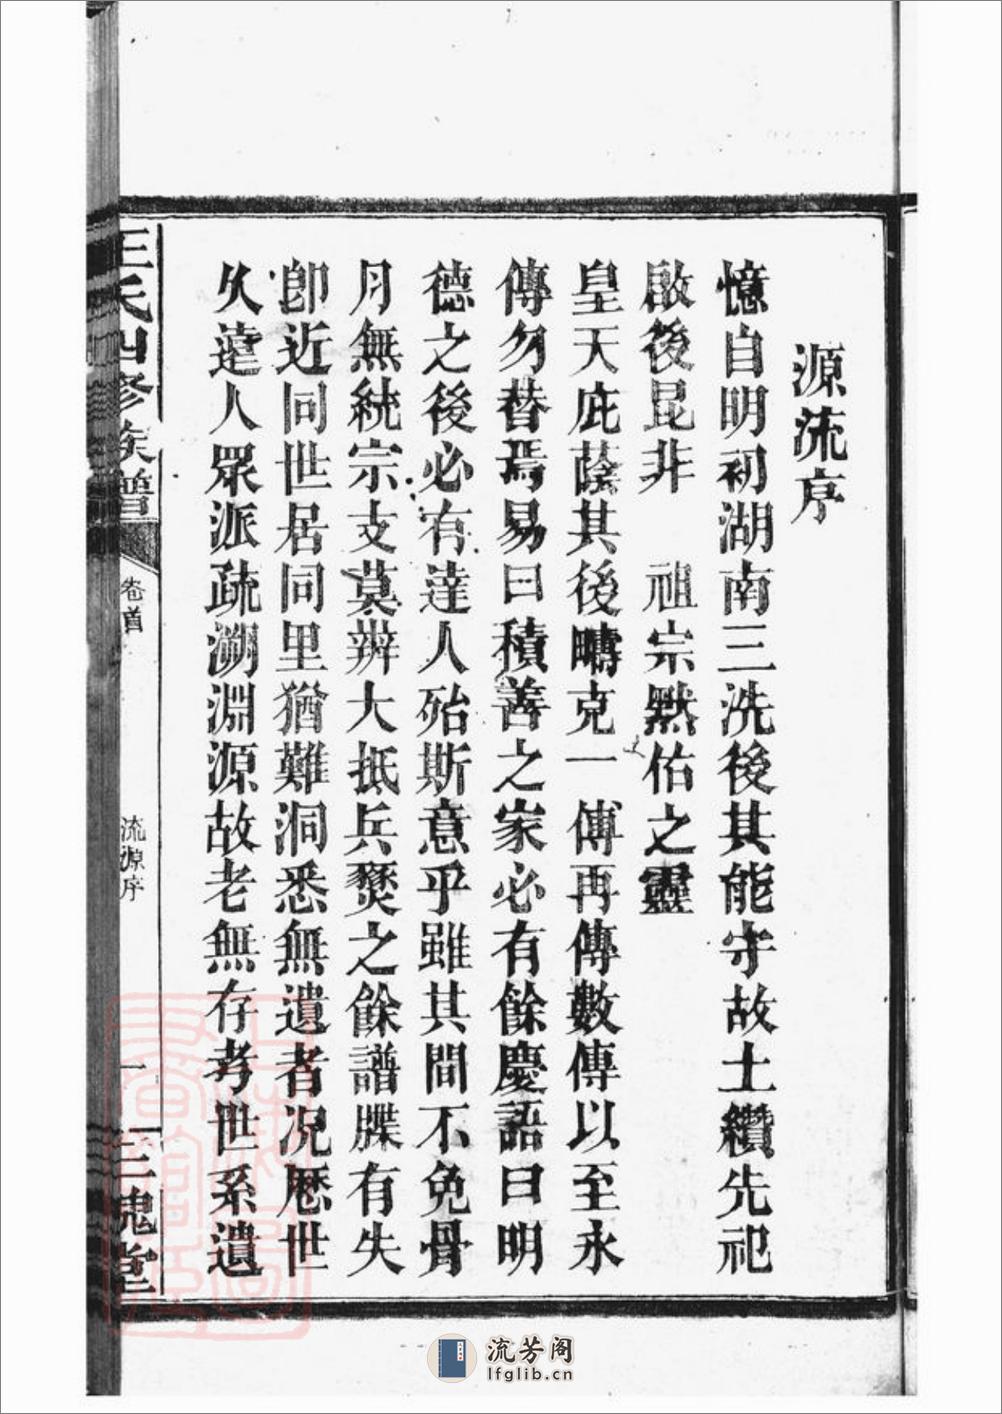 源流序
憶自明初湖南三洗後其能守故土纘先祀
啟後昆非 祖宗默佑之靈
皇天庇蔭其後疇克一傳再傳數傳以至永
傳勿替焉易曰積善之家必有餘慶語曰明
德之後必有達人殆斯意乎雖其間不免骨
月無統宗支莫辨大抵兵燹之餘譜牒有失
卽近同世居同里猶難洞悉無遺者况厯世
久遠人眾派疏溯淵源故老無存考世系遺
王氏四修族譜
卷首
流源序
一
三槐堂
流芳阁
lfglib.cn